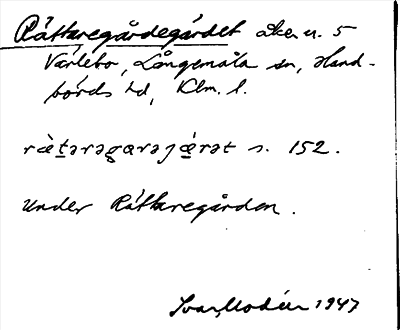 Råttaregårdegärdet åker n. 5
Värlebo, Långemåla sn, Hand-
börds hd, Klm. l.
ræ̀t̲ərəgɑrəjǽ̲rət s. 152.
Under Råttaregården.
Ivar Modéer 1947